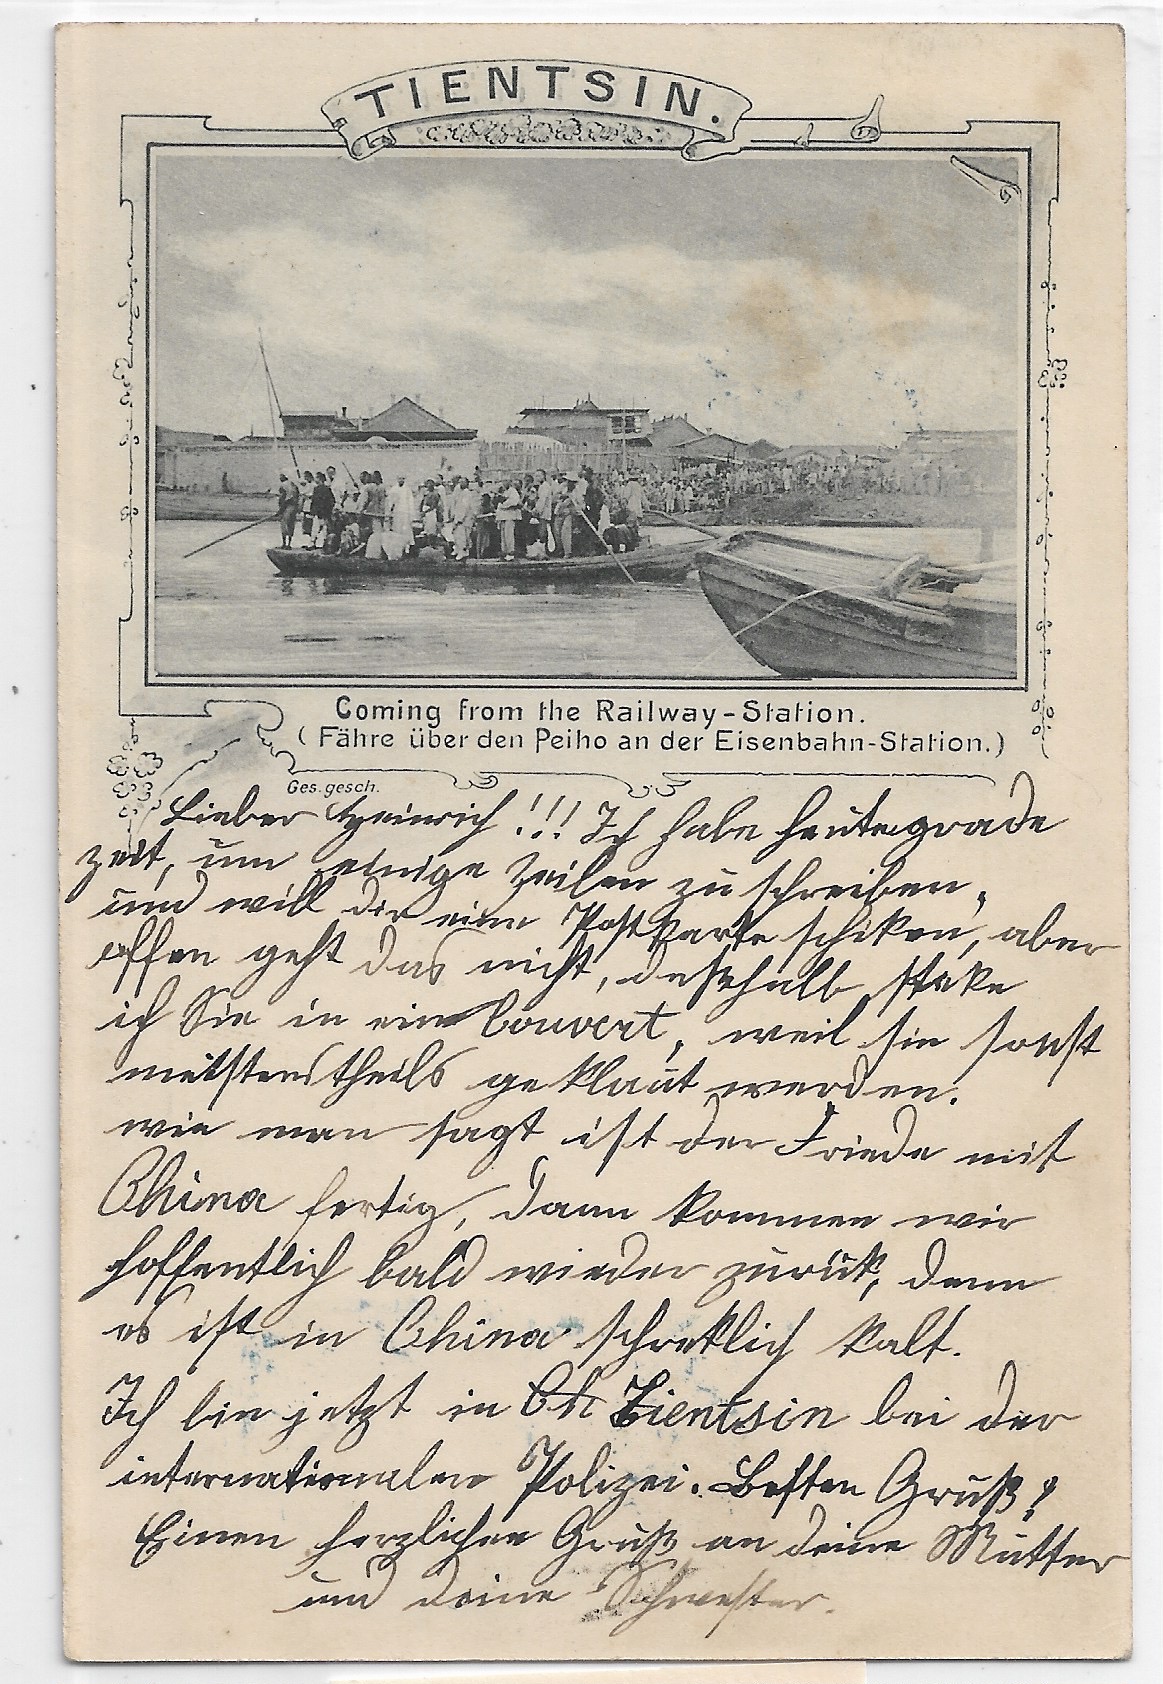 TIENTSIN.
Coming from the Railway-Station.
(Fähre über den Peiho an der Eisenbahn-Station.)
Ges. gesch.
Lieber Heinrich!!! Ich habe heute grade
zeit, um einige Zeilen zu schreiben,
und will dir eine Postkarte schiken, aber
offen geht das nicht, deßhalb steke
ich Sie in ein Couvert, weil sie sonst
meistenstheils geklaut werden.
wie man sagt ist der Friede mit
China fertig, dann kommen wir
hoffentlich bald wieder zurük, denn
es ist in China schreklich kalt.
Ich bin jetzt in Ch Tientsin bei der
internationalen Polizei. Besten Gruß!
Einen herzlichen Gruß an deine Mutter
und deine Schwester.